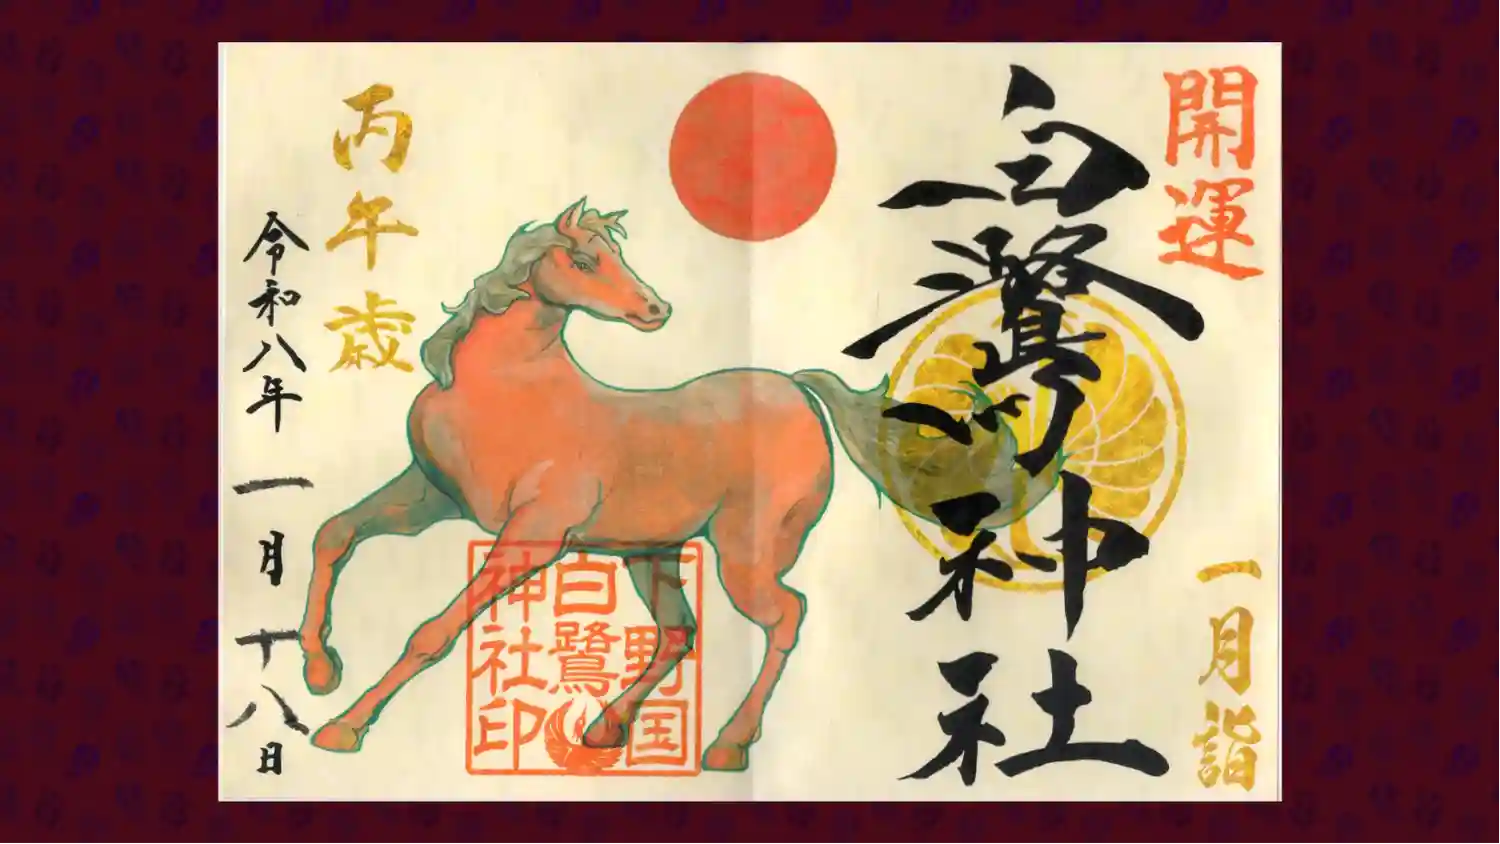 開運
白鷺神社
一月詣
下野国
白鷺
神社印
丙午歳
令和八年一月十八日